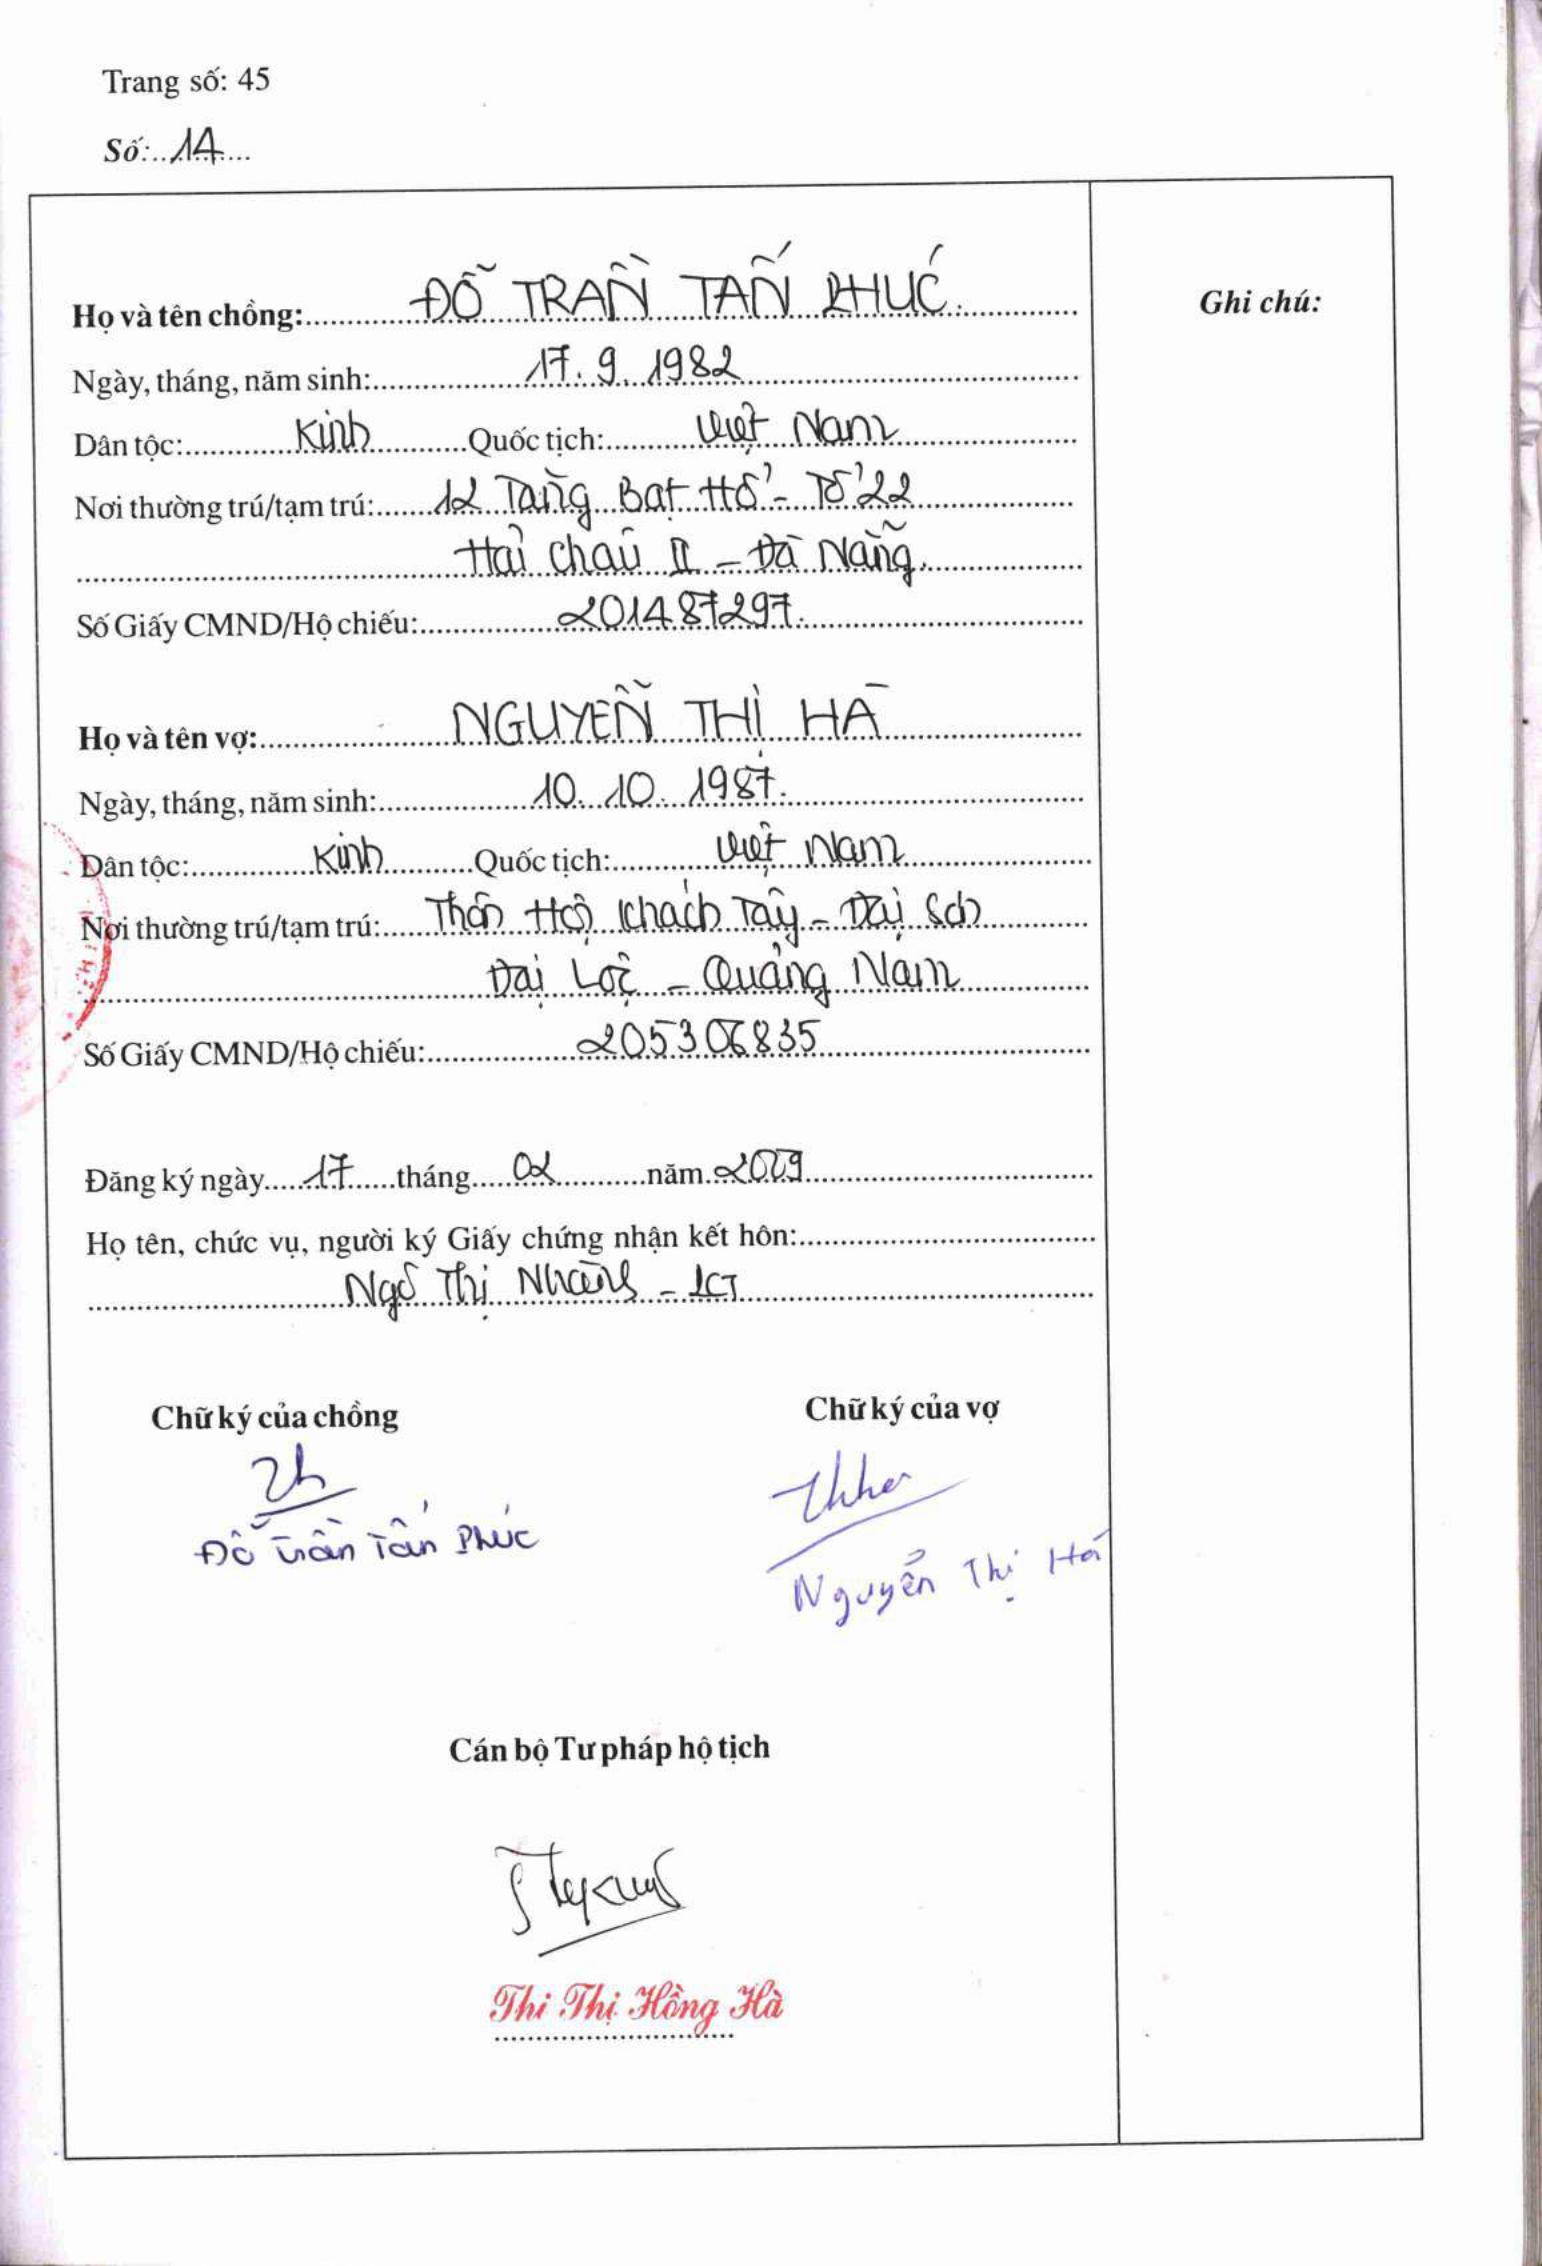 Trang số: 45
Số: 14
Họ và tên chồng: ĐỖ TRẦN TẤN PHÚC
Ghi chú:
Ngày, tháng, năm sinh: 17.9.1982
Dân tộc: Kinh Quốc tịch: Việt Nam
Nơi thường trú/tạm trú: 12 Tăng Bạt Hổ - Tổ 22
Hải Châu II - Đà Nẵng
Số Giấy CMND/Hộ chiếu: 201487297
Họ và tên vợ: NGUYỄN THỊ HÀ
Ngày, tháng, năm sinh: 10.10.1987.
Dân tộc: Kinh Quốc tịch: Việt Nam
Nơi thường trú/tạm trú: Thôn Hội Khách Tây - Đại Sơn
Đại Lộc - Quảng Nam
Số Giấy CMND/Hộ chiếu: 205306835
Đăng ký ngày 17 tháng 02 năm 2009
Họ tên, chức vụ, người ký Giấy chứng nhận kết hôn:
Ngô Thị Nhường - CT
Chữ ký của chồng Chữ ký của vợ
Đỗ Trần Tấn Phúc
Nguyễn Thị Hà
Cán bộ Tư pháp hộ tịch
Thi Thị Hồng Hà